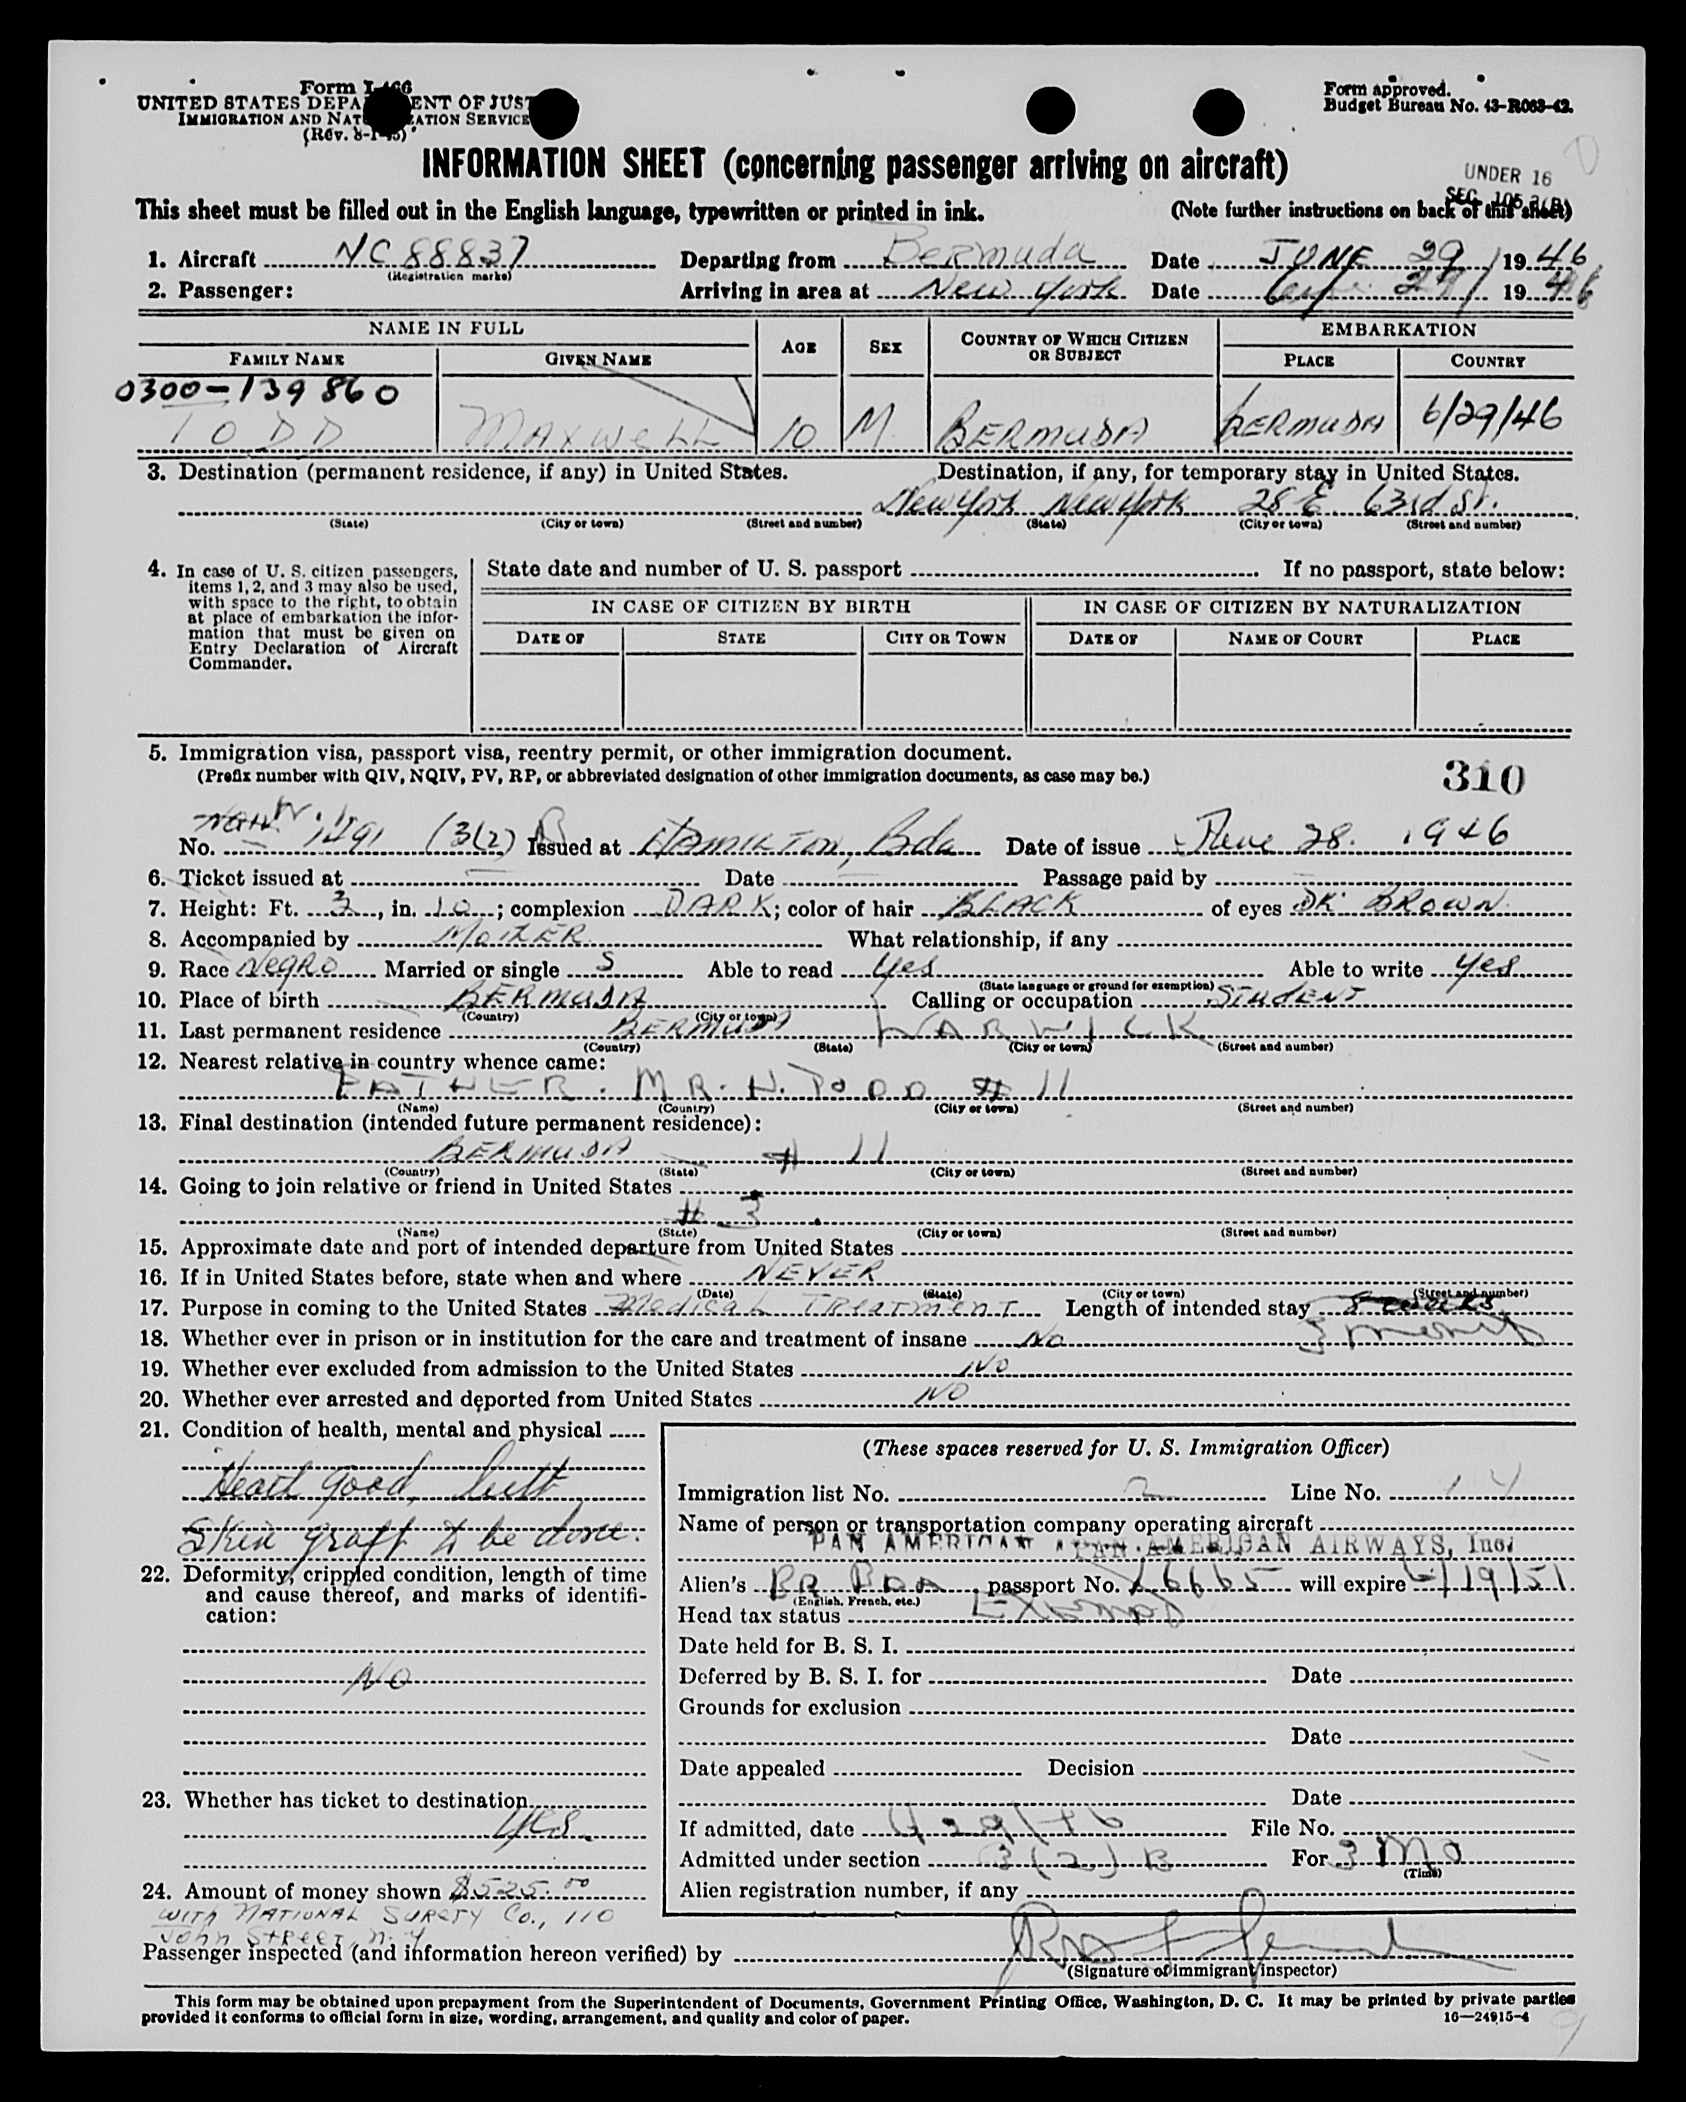 Form I-466
UNITED STATES DEPARTMENT OF JUSTICE
IMMIGRATION AND NATURALIZATION SERVICE
(Rev. 8-1-45)
Form approved.
Budget Bureau No. 43-R063-42.
INFORMATION SHEET (concerning passenger arriving on aircraft)
UNDER 16
SEC. 105.3(B)
This sheet must be filled out in the English language, typewritten or printed in ink. (Note further instructions on back of this sheet)
1. Aircraft NC 88837 Departing from Bermuda Date JUNE 29 1946
(Registration marks)
2. Passenger: Arriving in area at New York Date 29 1946
NAME IN FULL AGE SEX COUNTRY OF WHICH CITIZEN OR SUBJECT EMBARKATION
FAMILY NAME GIVEN NAME PLACE COUNTRY
0300-139860
TODD MAXWELL 10 M BERMUDA BERMUDA 6/29/46
3. Destination (permanent residence, if any) in United States. Destination, if any, for temporary stay in United States.
New York New York 28 E. 63rd St.
(State) (City or town) (Street and number) (State) (City or town) (Street and number)
4. In case of U. S. citizen passengers, items 1, 2, and 3 may also be used, with space to the right, to obtain at place of embarkation the information that must be given on Entry Declaration of Aircraft Commander.
State date and number of U. S. passport If no passport, state below:
IN CASE OF CITIZEN BY BIRTH IN CASE OF CITIZEN BY NATURALIZATION
DATE OF STATE CITY OR TOWN DATE OF NAME OF COURT PLACE
5. Immigration visa, passport visa, reentry permit, or other immigration document.
(Prefix number with QIV, NQIV, PV, RP, or abbreviated designation of other immigration documents, as case may be.)
310
No. 1491 (3(2) B Issued at HAMILTON, Bda Date of issue June 28. 1946
6. Ticket issued at Date Passage paid by
7. Height: Ft. 3, in. 10; complexion DARK; color of hair BLACK of eyes DK BROWN
8. Accompanied by MOTHER What relationship, if any
9. Race Negro Married or single S Able to read Yes Able to write Yes
(State language or ground for exemption)
10. Place of birth BERMUDA Calling or occupation STUDENT
(Country) (City or town)
11. Last permanent residence BERMUDA WARWICK
(Country) (State) (City or town) (Street and number)
12. Nearest relative in country whence came:
FATHER. MR. H. TODD # 11
(Name) (Country) (City or town) (Street and number)
13. Final destination (intended future permanent residence):
BERMUDA # 11
(Country) (State) (City or town) (Street and number)
14. Going to join relative or friend in United States
# 3
(Name) (State) (City or town) (Street and number)
15. Approximate date and port of intended departure from United States
16. If in United States before, state when and where NEVER
(Date) (State) (City or town) (Street and number)
17. Purpose in coming to the United States Medical TREATMENT Length of intended stay 8 weeks
3 months
18. Whether ever in prison or in institution for the care and treatment of insane No
19. Whether ever excluded from admission to the United States NO
20. Whether ever arrested and deported from United States NO
21. Condition of health, mental and physical
Heart good, but
Skin graft to be done.
22. Deformity, crippled condition, length of time and cause thereof, and marks of identification:
No
23. Whether has ticket to destination
Yes.
24. Amount of money shown $525.00
WITH NATIONAL SURETY Co., 110
John Street, N.Y.
(These spaces reserved for U. S. Immigration Officer)
Immigration list No. 2 Line No. 14
Name of person or transportation company operating aircraft
PAN AMERICAN PAN AMERICAN AIRWAYS, Inc.
Alien's BR BDA passport No. 26665 will expire 6/19/51.
(English, French, etc.)
Head tax status Exempt
Date held for B. S. I.
Deferred by B. S. I. for Date
Grounds for exclusion
Date
Date appealed Decision
Date
If admitted, date 6/29/46 File No.
Admitted under section 3(2)B For 3 Mo
(Time)
Alien registration number, if any
Passenger inspected (and information hereon verified) by
(Signature of immigrant inspector)
This form may be obtained upon prepayment from the Superintendent of Documents, Government Printing Office, Washington, D. C. It may be printed by private parties
provided it conforms to official form in size, wording, arrangement, and quality and color of paper.
16—24915-4